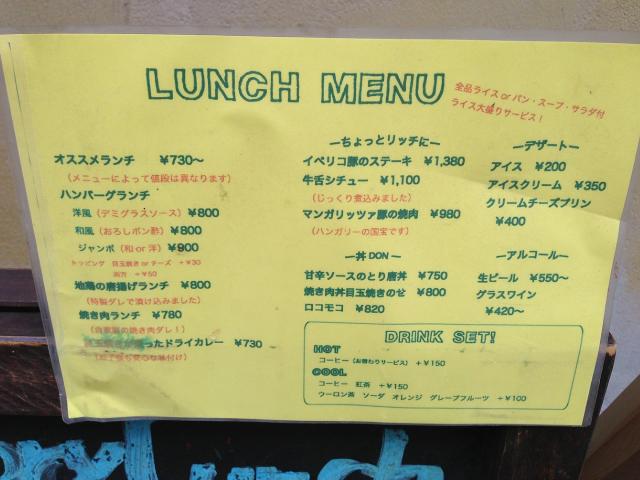 LUNCH MENU
全品ライス or パン・スープ・サラダ付
ライス大盛りサービス！
オススメランチ ¥730〜
（メニューによって値段は異なります）
ハンバーグランチ
洋風（デミグラスソース） ¥800
和風（おろしポン酢） ¥800
ジャンボ（和 or 洋） ¥900
トッピング 目玉焼き or チーズ ＋¥30
両方 ＋¥50
地鶏の唐揚げランチ ¥800
（特製ダレで漬け込みました）
焼き肉ランチ ¥780
（自家製の焼き肉ダレ！）
ったドライカレー ¥730
ーちょっとリッチにー
イベリコ豚のステーキ ¥1,380
牛舌シチュー ¥1,100
（じっくり煮込みました）
マンガリッツァ豚の焼肉 ¥980
（ハンガリーの国宝です）
ー丼 DONー
甘辛ソースのとり唐丼 ¥750
焼き肉丼目玉焼きのせ ¥800
ロコモコ ¥820
ーデザートー
アイス ¥200
アイスクリーム ¥350
クリームチーズプリン
¥400
ーアルコールー
生ビール ¥550〜
グラスワイン
¥420〜
DRINK SET!
HOT
コーヒー（お替わりサービス） ＋¥150
COOL
コーヒー 紅茶 ＋¥150
ウーロン茶 ソーダ オレンジ グレープフルーツ ＋¥100
Lunch